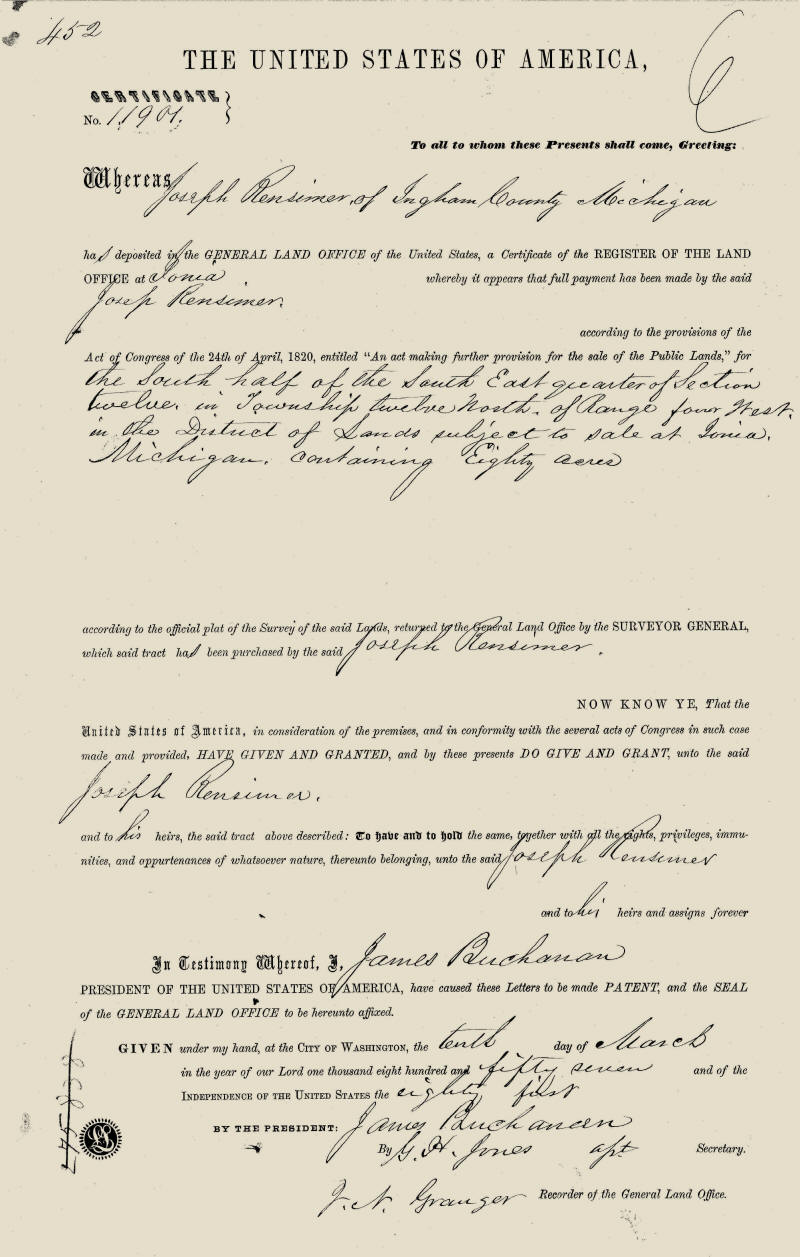 452
THE UNITED STATES OF AMERICA,
CERTIFICATE
No. 11901.
To all to whom these Presents shall come, Greeting:
Whereas Joseph Rensimer, of Ingham County Michigan
has deposited in the GENERAL LAND OFFICE of the United States, a Certificate of the REGISTER OF THE LAND
OFFICE at Ionia whereby it appears that full payment has been made by the said
Josep Rensimer.
according to the provisions of the
Act of Congress of the 24th of April, 1820, entitled "An act making further provision for the sale of the Public Lands," for
the South half of the South East quarter of Section
twelve. in Township twelve North. of Range four West.
in the District of Lands subject to sale at Ionia.
Michigan. containing Eighty acres
according to the official plat of the Survey of the said Lands, returned to the General Land Office by the SURVEYOR GENERAL,
which said tract has been purchased by the said Joseph Rensimer.
NOW KNOW YE, That the
United States of America, in consideration of the premises, and in conformity with the several acts of Congress in such case
made and provided, HAVE GIVEN AND GRANTED, and by these presents DO GIVE AND GRANT, unto the said
Joseph Rensimer.
and to his heirs, the said tract above described: To have and to hold the same, together with all the rights, privileges, immu-
nities, and appurtenances of whatsoever nature, thereunto belonging, unto the said Joseph Rensimer
and to his heirs and assigns forever
In Testimony Whereof, I, James Buchanan
PRESIDENT OF THE UNITED STATES OF AMERICA, have caused these Letters to be made PATENT, and the SEAL
of the GENERAL LAND OFFICE to be hereunto affixed.
GIVEN under my hand, at the CITY OF WASHINGTON, the tenth day of March
in the year of our Lord one thousand eight hundred and fifty seven and of the
INDEPENDENCE OF THE UNITED STATES the eighty first
BY THE PRESIDENT: James Buchanan
By G. H. Jones Secretary.
J. N. Granger Recorder of the General Land Office.